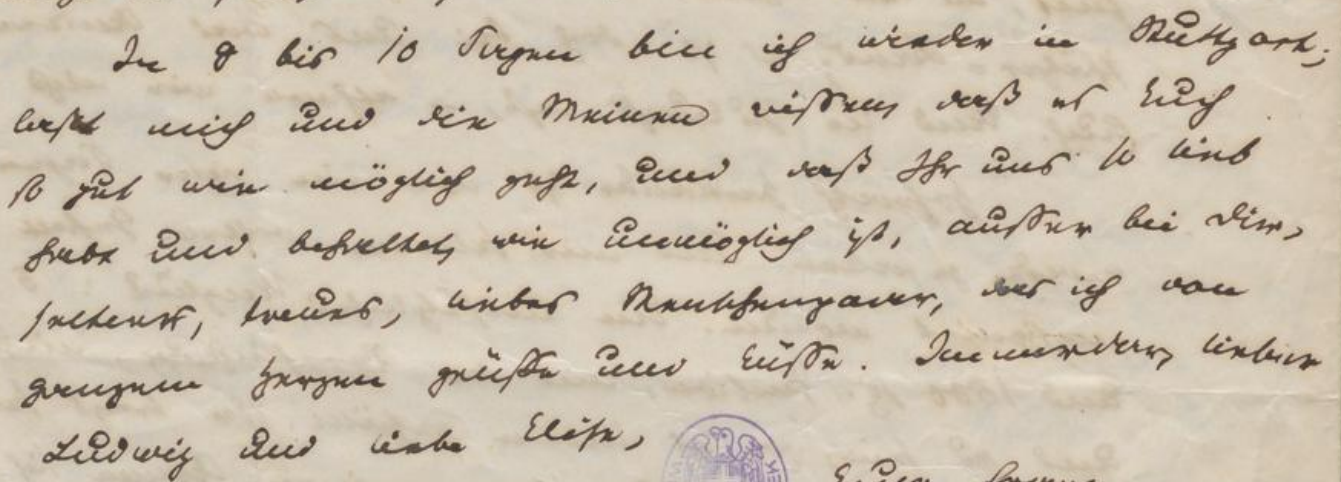 In 8 bis 10 Tagen bin ich wieder in Stuttgart;
laßt mich und die Meinen wissen, daß es Euch
so gut wie möglich geht, und daß Ihr uns so lieb
habt und behaltet, wie unmöglich ist, außer bei Dir,
seltenes, treues, liebes Menschenpaar, das ich von
ganzem Herzen grüße und küsse. Immerdar, lieber
Ludwig und liebe Elise,
Euer